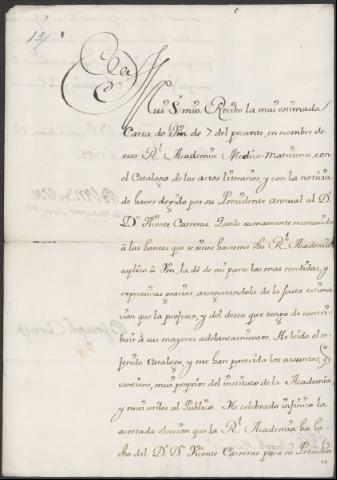 Mui S.r mio. Recibo la mui estimada
Carta de Vm de 7 del presente, en nombre de
essa R.l Academia Medico-Matritense, con
el Catalogo de los actos literarios, y con la noticia
de haver elegido por su Presidente annual al D.r
D.n Vicente Carreras. Quedo sumamente reconocido
à las honras que se sirve hacerme essa R.l Academia
suplico à Vm, la dè de mi parte las mas rendidas, y
expresivas gracias, assegurandola de la justa estima
cion que la professo, y del deseo que tengo de contri
buir à sus mayores adelantamientos. He leido el re
ferido Catalogo, y me han parecido los assuntos, q
contiene, mui proprios del instituto de la Academia,
y mui utiles al Publico. He celebrado infinito la
acertada eleccion que la R.l Academia ha he
cho del D.r D. Vicente Carreras para su Presiden
te